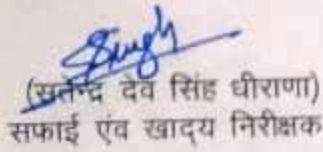 Singh
(सतेन्द्र देव सिंह धीराणा)
सफाई एंव खाद्य निरीक्षक